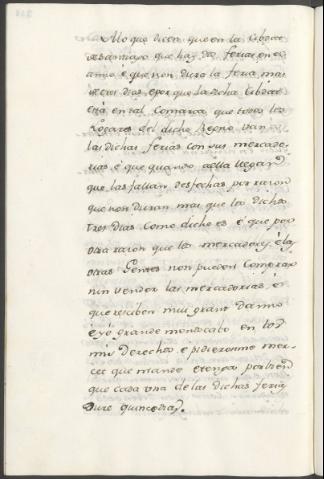 Alo que dicen que en la Cibdat
de Santiago que hay dos ferias en el
anno é que non dura la feria mas
de tres dias, é por que la dicha Cibdat
está en tal Comarca que todos los
Logares del dicho Regno van á
las dichas ferias con sus mercade-
rias é que quando aella llegan
que las fallan desfechas por razon
que non duran mas que los dichos
tres dias como dicho es é que por
esta razon que los mercaderes é las
otras Gentes non pueden comprar
nin vender las mercadorias, é
que reciben mui grant danno
é yó grande menoscabo en los
mis derechos é pidieronme mer-
cet que mande é tenga por bien
que cada una de las dichas ferias
dure quince dias.